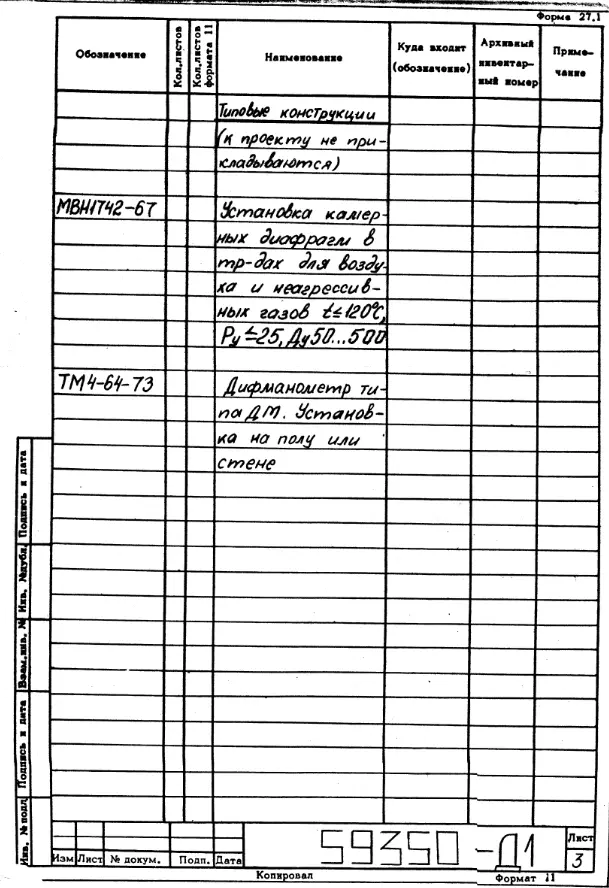 Форма 27.1
Обозначение
Кол.листов
Кол.листов формата 11
Наименование
Куда входит
(обозначение)
Архивный
инвентар-
ный номер
Приме-
чание
Типовые конструкции
(к проекту не при-
кладываются)
МВН1742-67
Установка камер-
ных диафрагм в
тр-дах для возду-
ха и неагрессив-
ных газов t≤120°С,
Ру≤25, Ду50...500
ТМ4-64-73
Дифманометр ти-
па ДМ. Установ-
ка на полу или
стене
Подпись и дата
Инв. №дубл.
Взам.инв. №
Подпись и дата
Инв. № подл
Изм Лист № докум. Подп. Дата
59350-Д1
Лист
3
Копировал
Формат 11